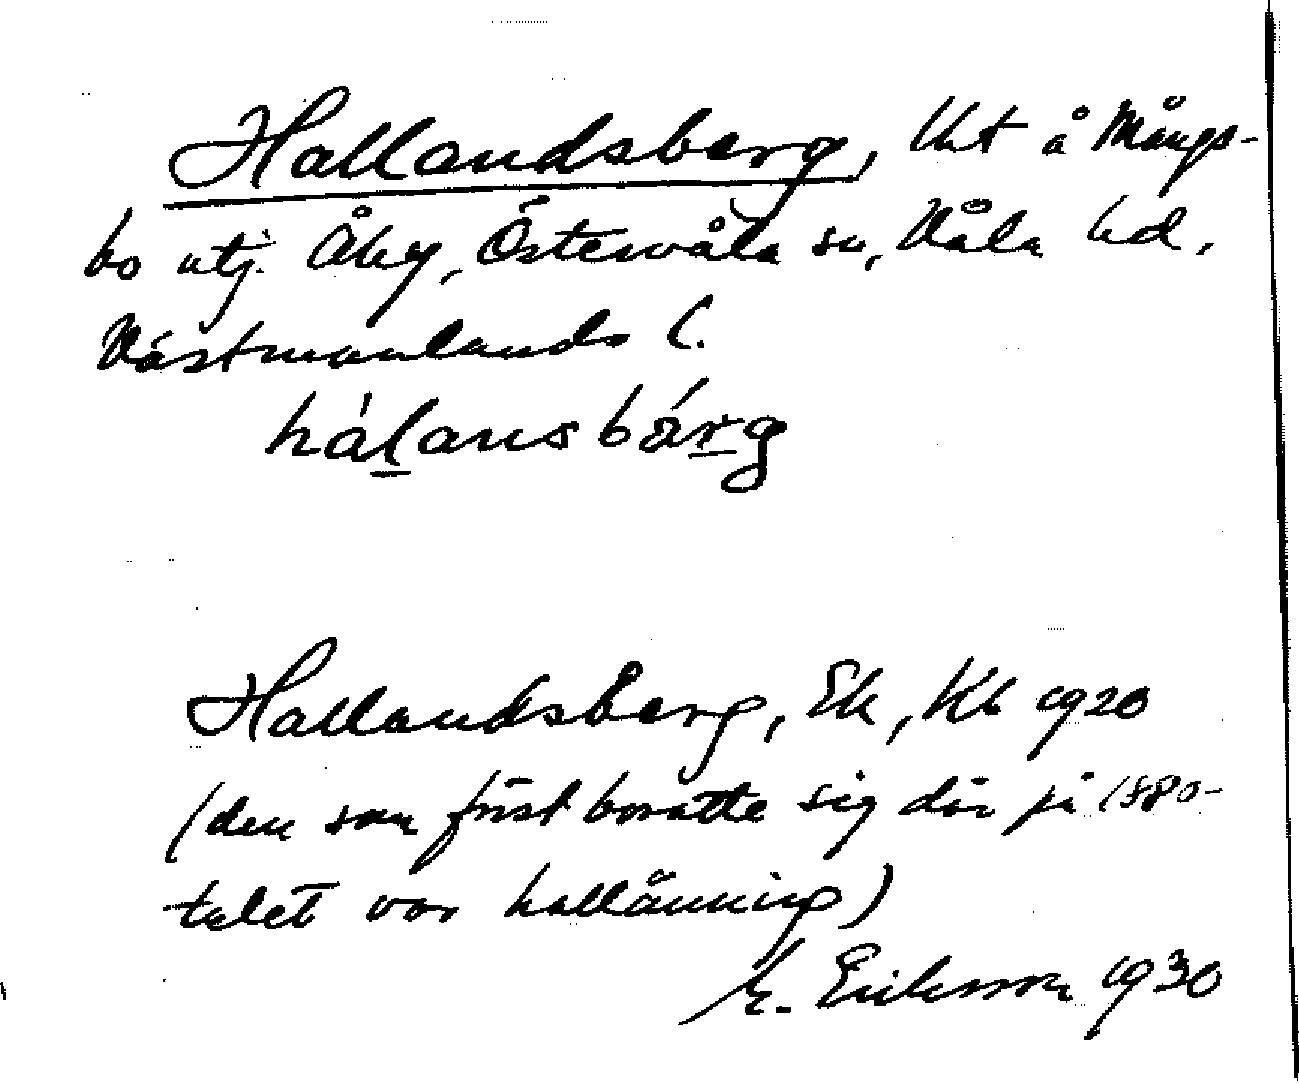 Hallandsberg, lht å Mångs-
bo utj. Åby, Östervåla sn, Våla hd,
Västmanlands l.
hálansbárg
Hallandsberg, Ek, Kb 1920
(den som först bosatte sig där på 1880-
talet var hallänning)
E. Eriksson 1930